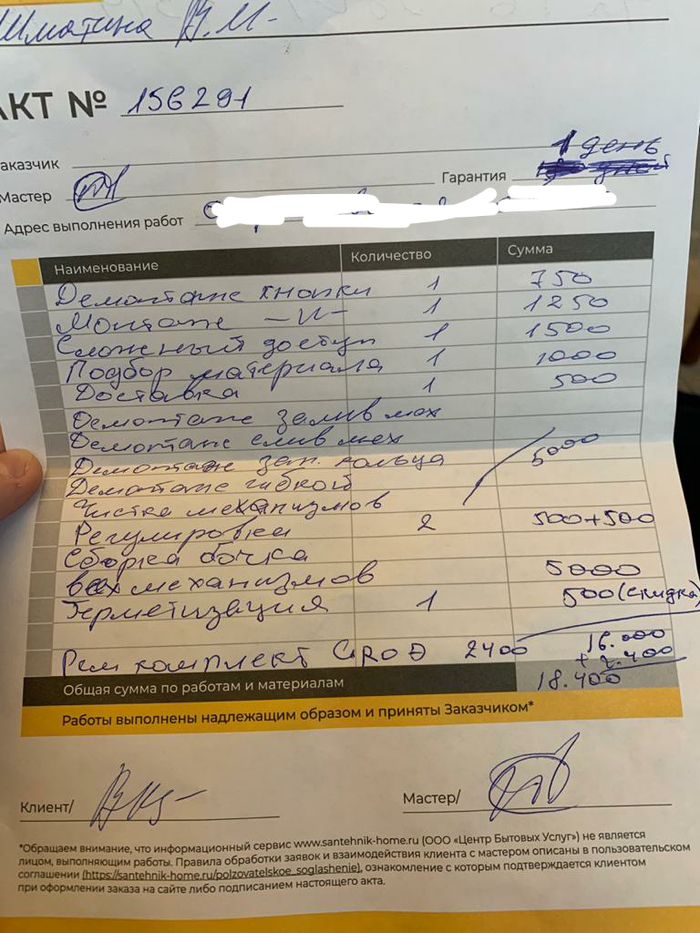 Шматина В.М.
АКТ № 156291
аказчик
1 день
Мастер
Гарантия
Адрес выполнения работ
Наименование Количество Сумма
Демонтаж кнопки 1 750
Монтаж —//— 1 1250
Сложный доступ 1 1500
Подбор материала 1 1000
Доставка 1 500
Демонтаж залив мех
Демонтаж слив мех
Демонтаж зап. кольца 5000
Демонтаж гибкой
Чистка механизмов
Регулировка 2 500+500
Сборка бочка
всех механизмов 5000
Герметизация 1 500 (скидка)
16.000
Рем комплект GROD 2400 + 2.400
Общая сумма по работам и материалам 18.400
Работы выполнены надлежащим образом и приняты Заказчиком*
Клиент/ Мастер/
*Обращаем внимание, что информационный сервис www.santehnik-home.ru (ООО «Центр Бытовых Услуг») не является
лицом, выполняющим работы. Правила обработки заявок и взаимодействия клиента с мастером описаны в пользовательском
соглашении (https://santehnik-home.ru/polzovatelskoe_soglashenie), ознакомление с которым подтверждается клиентом
при оформлении заказа на сайте либо подписанием настоящего акта.